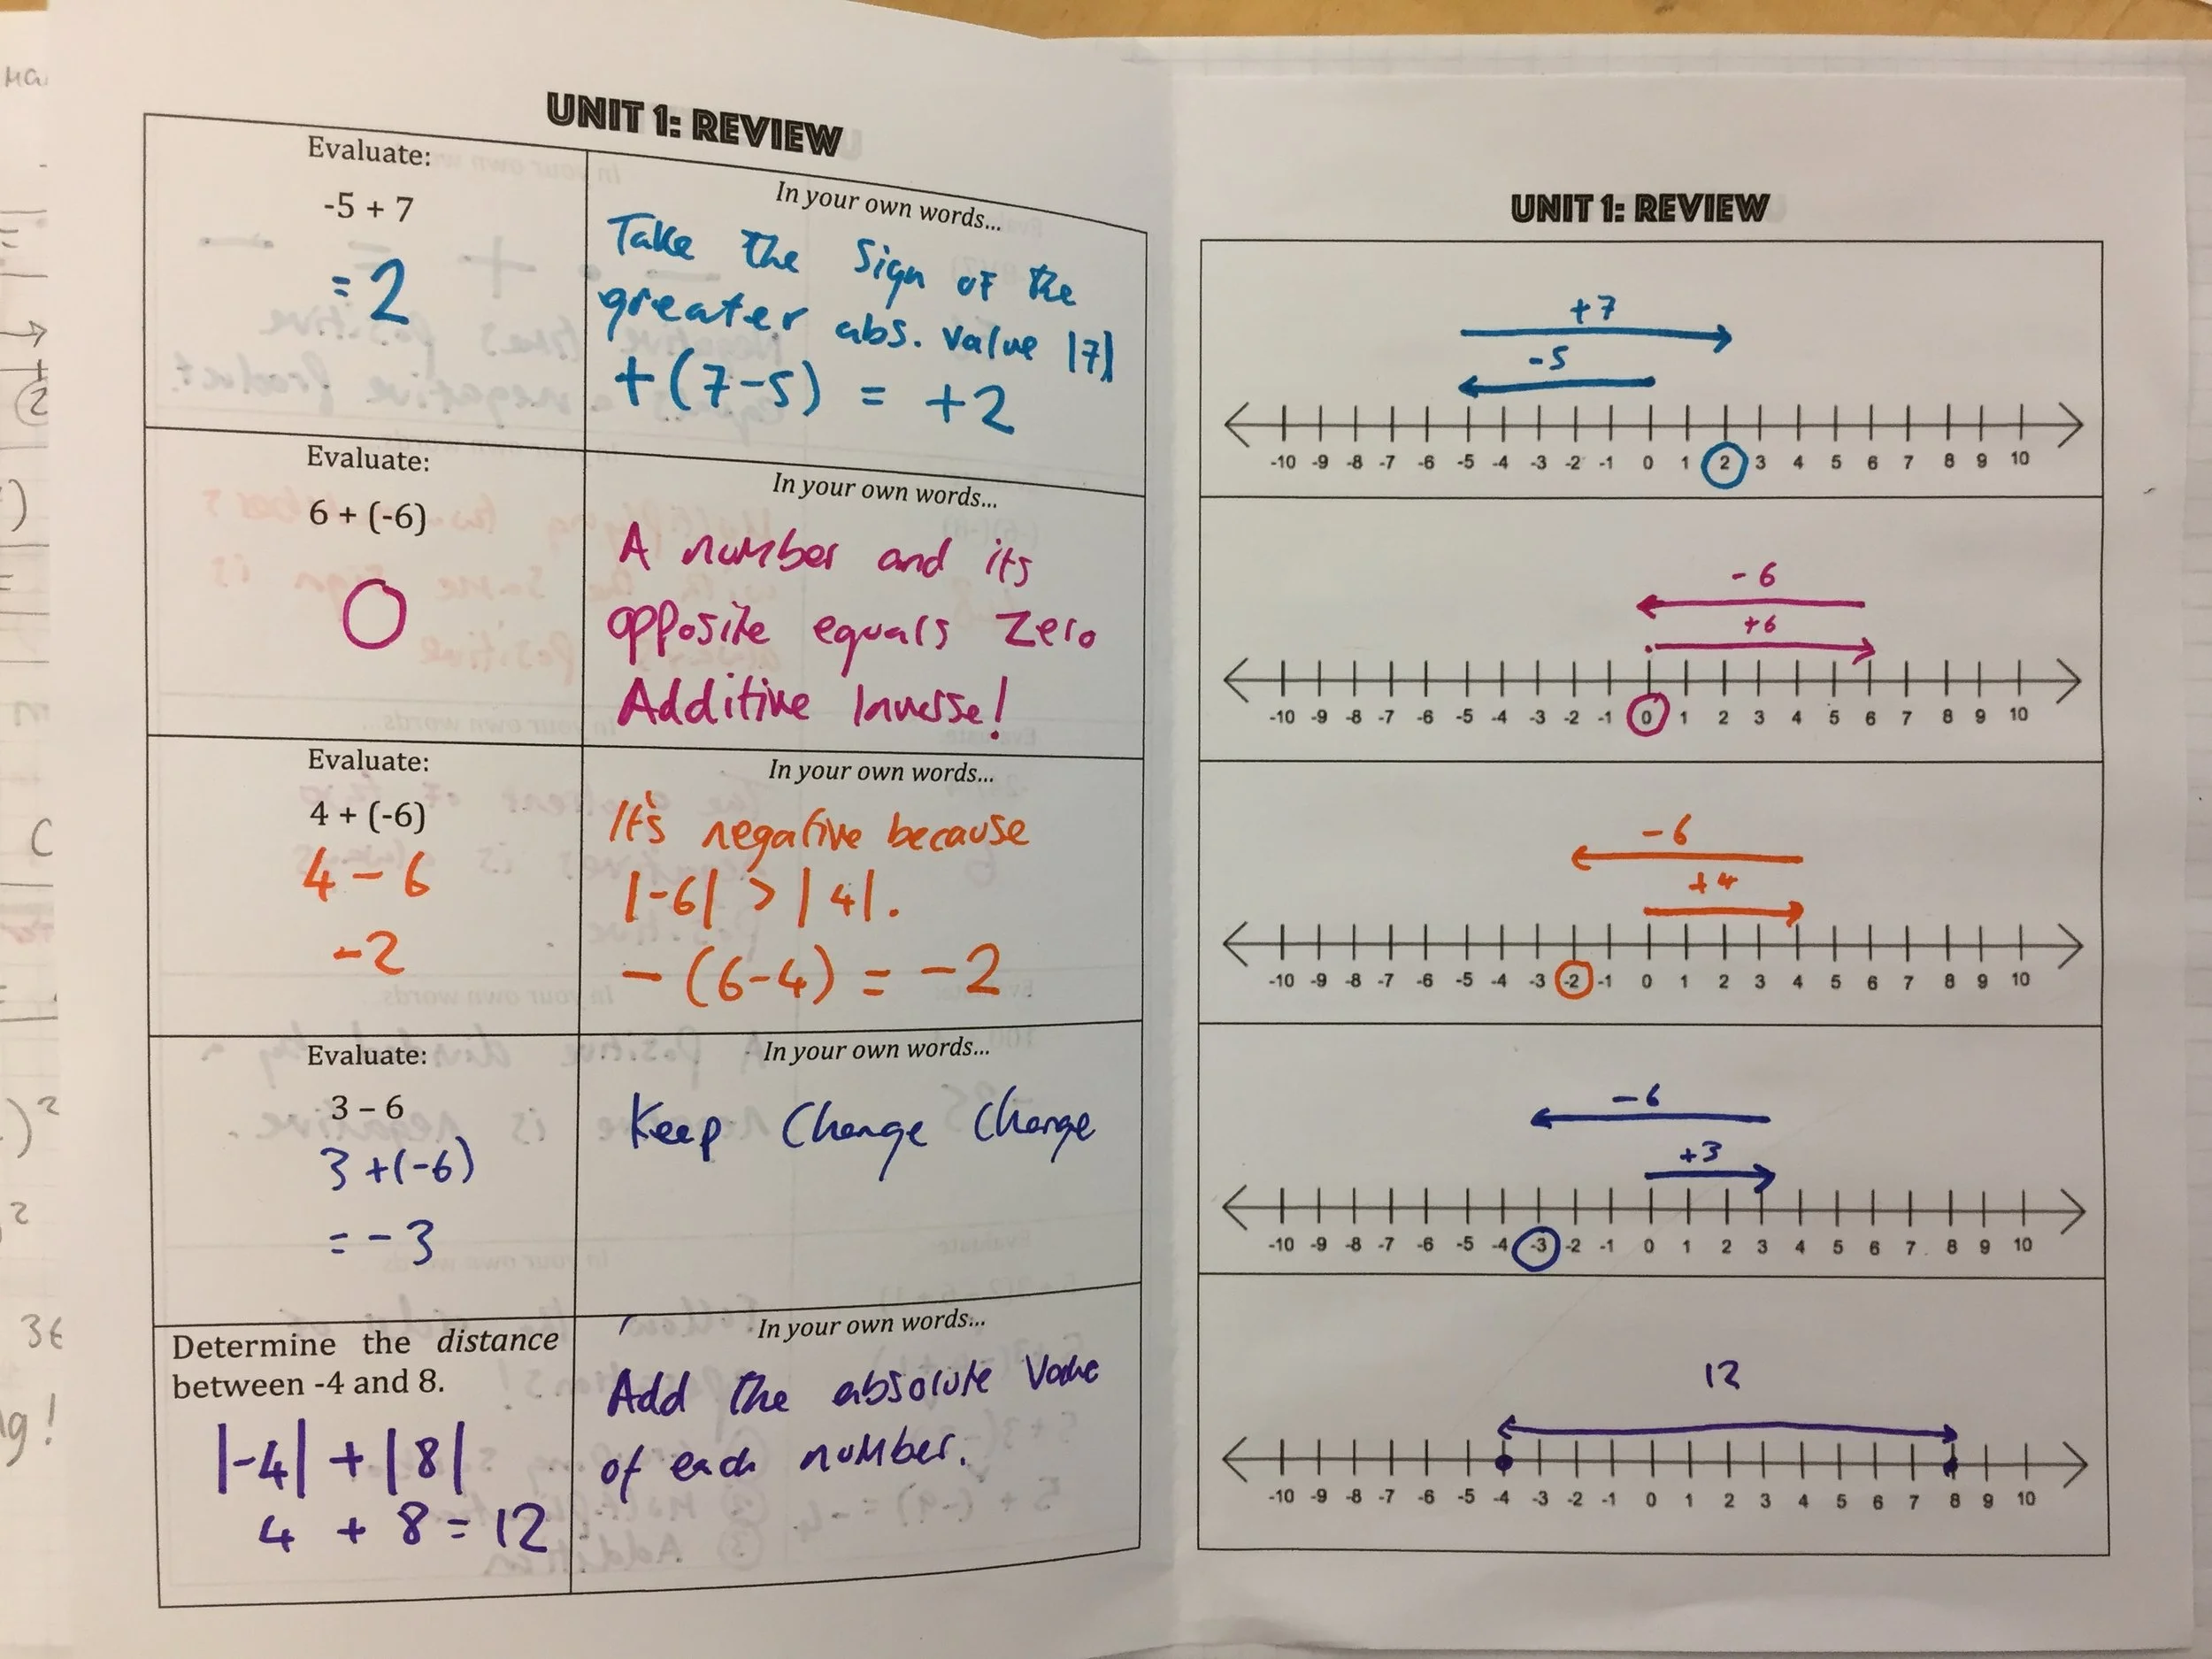 UNIT 1: REVIEW
Evaluate:
-5 + 7
= 2
In your own words...
Take the Sign of the
greater abs. value |7|
+(7-5) = +2
Evaluate:
6 + (-6)
0
In your own words...
A number and its
opposite equals zero
Additive Inverse!
Evaluate:
4 + (-6)
4 - 6
-2
In your own words...
It's negative because
|-6| > |4|.
-(6-4) = -2
Evaluate:
3 – 6
3 +(-6)
= -3
In your own words...
Keep Change Change
Determine the distance
between -4 and 8.
|-4| + |8|
4 + 8 = 12
In your own words...
Add the absolute Value
of each number.
UNIT 1: REVIEW
+7
-5
-10 -9 -8 -7 -6 -5 -4 -3 -2 -1 0 1 2 3 4 5 6 7 8 9 10
-6
+6
-10 -9 -8 -7 -6 -5 -4 -3 -2 -1 0 1 2 3 4 5 6 7 8 9 10
-6
+4
-10 -9 -8 -7 -6 -5 -4 -3 -2 -1 0 1 2 3 4 5 6 7 8 9 10
-6
+3
-10 -9 -8 -7 -6 -5 -4 -3 -2 -1 0 1 2 3 4 5 6 7 8 9 10
12
-10 -9 -8 -7 -6 -5 -4 -3 -2 -1 0 1 2 3 4 5 6 7 8 9 10